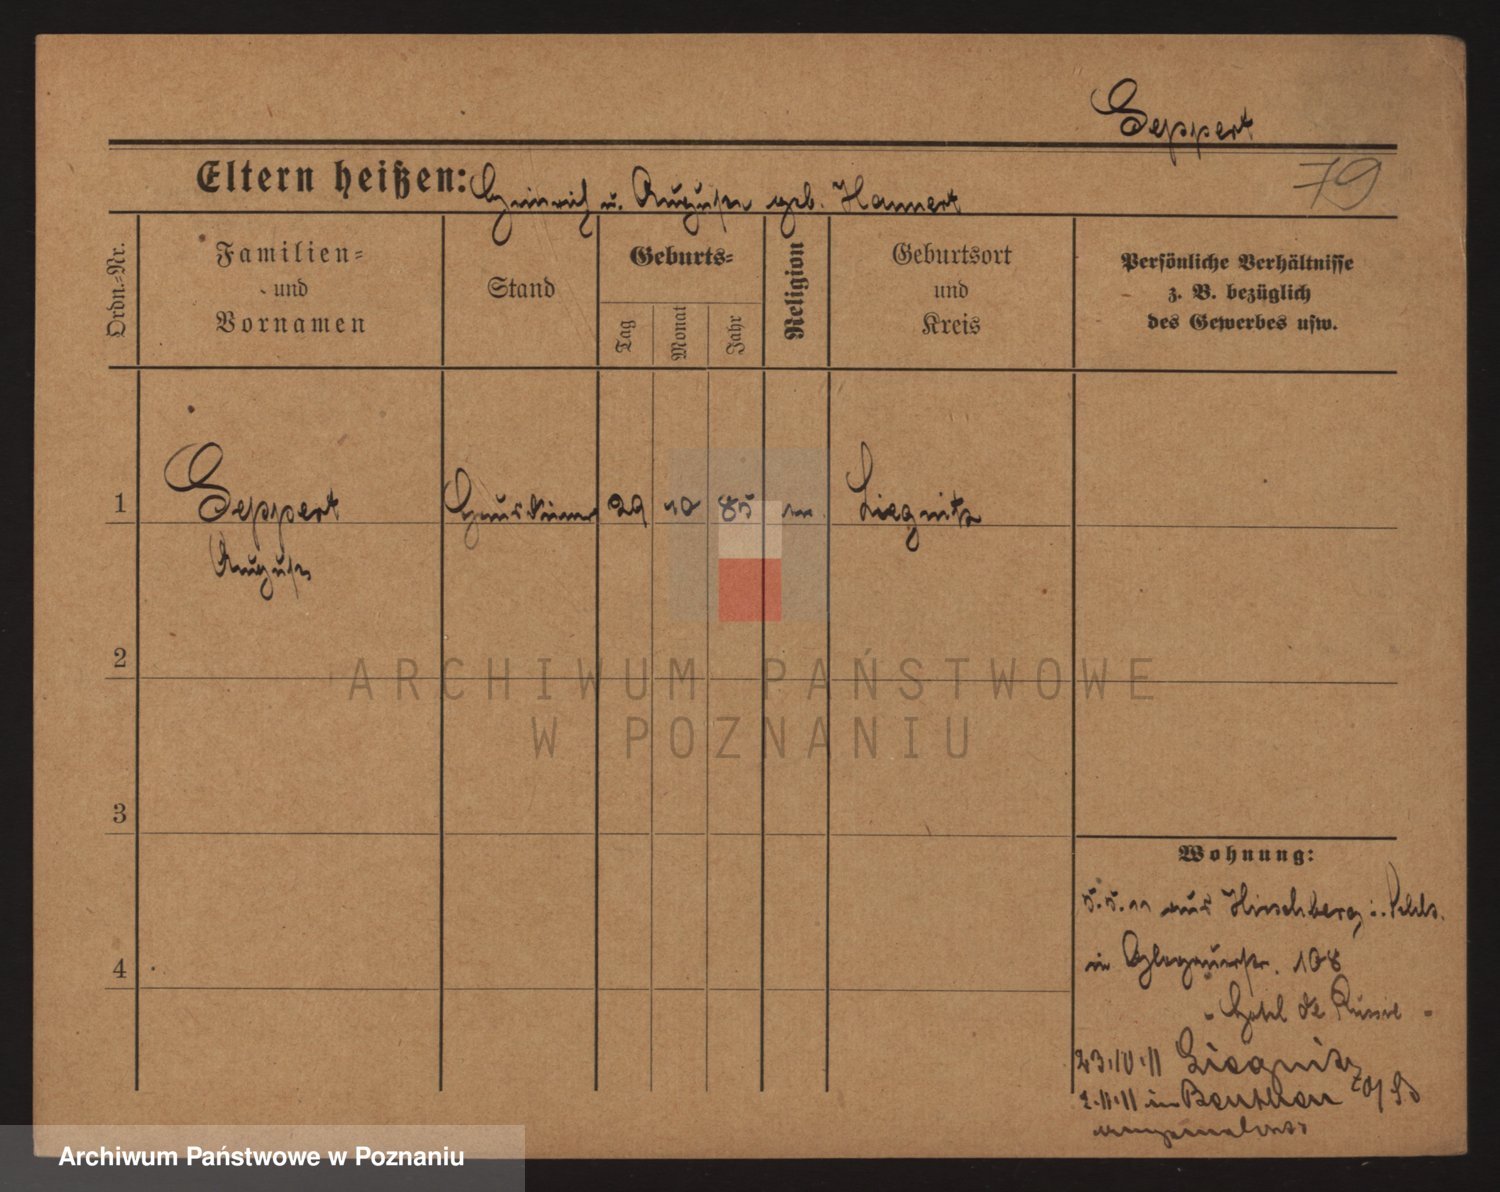 Seppert
79
Eltern heißen: Heinrich u. Auguste geb. Hannert
Ordn.=Nr.
Familien= und Vornamen
Stand
Geburts=
Tag
Monat
Jahr
Religion
Geburtsort und Kreis
Persönliche Verhältnisse
z. B. bezüglich
des Gewerbes usw.
1 Seppert Hausdiener 29 10 85 Liegnitz
August
2
3
4
Wohnung:
5.5.11 aus Hirschberg i. Schls.
in Glogauerstr. 108
" Hotel de Russie "
Liegnitz
in Beuthen
angemeldet
ARCHIWUM PAŃSTWOWE
W POZNANIU
Archiwum Państwowe w Poznaniu